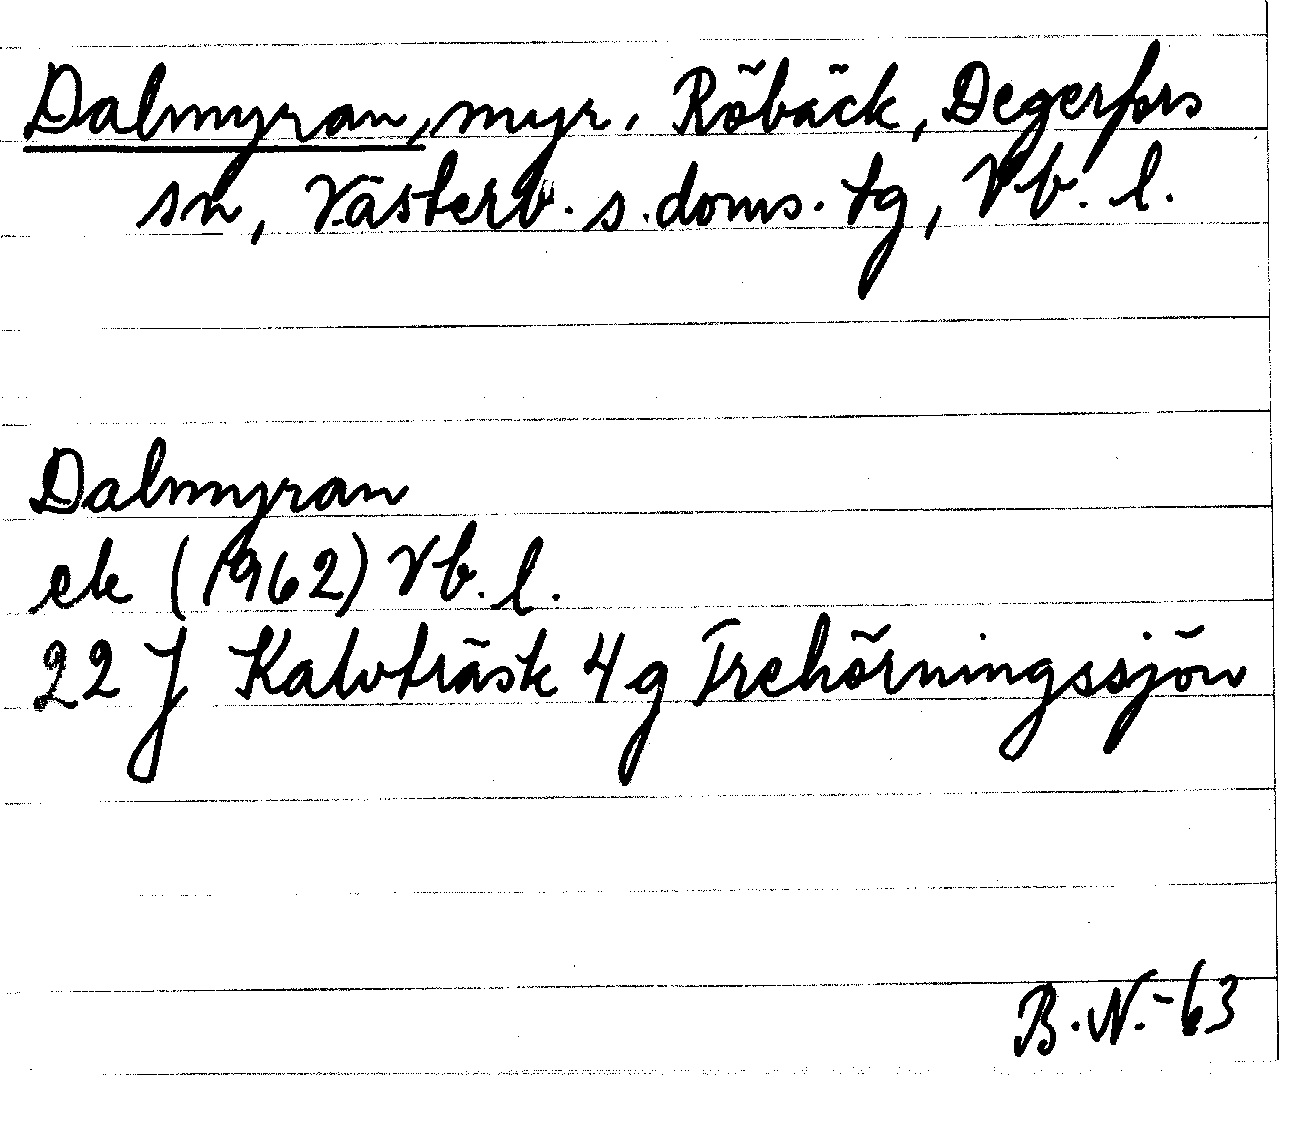 Dalmyran, myr. Röbäck, Degerfors
sn, Västerb. s. doms. tg, Vb. l.
Dalmyran
ek (1962) Vb. l.
22 J Kalvträsk 4 g Trehörningssjön
B. N. -63